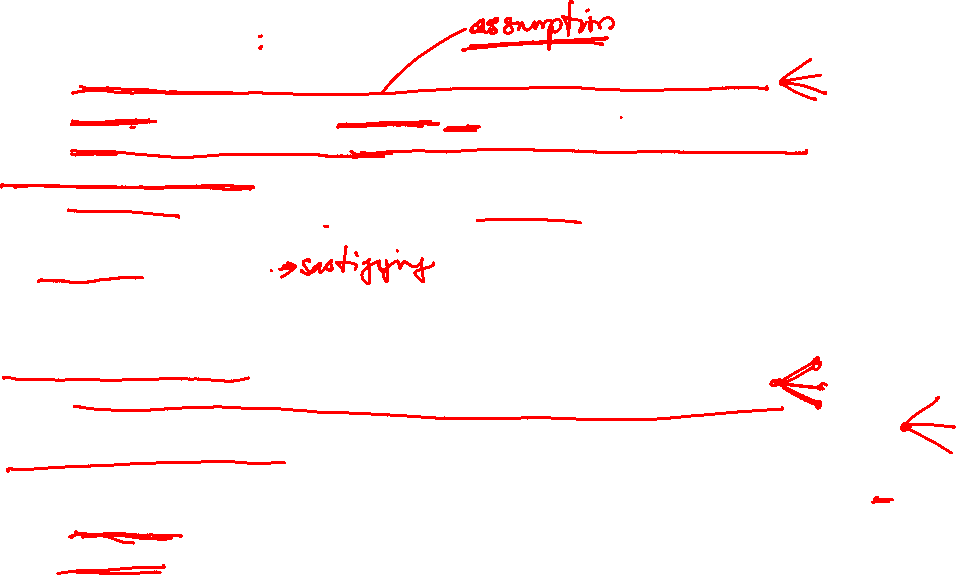 assumptions
satisfying